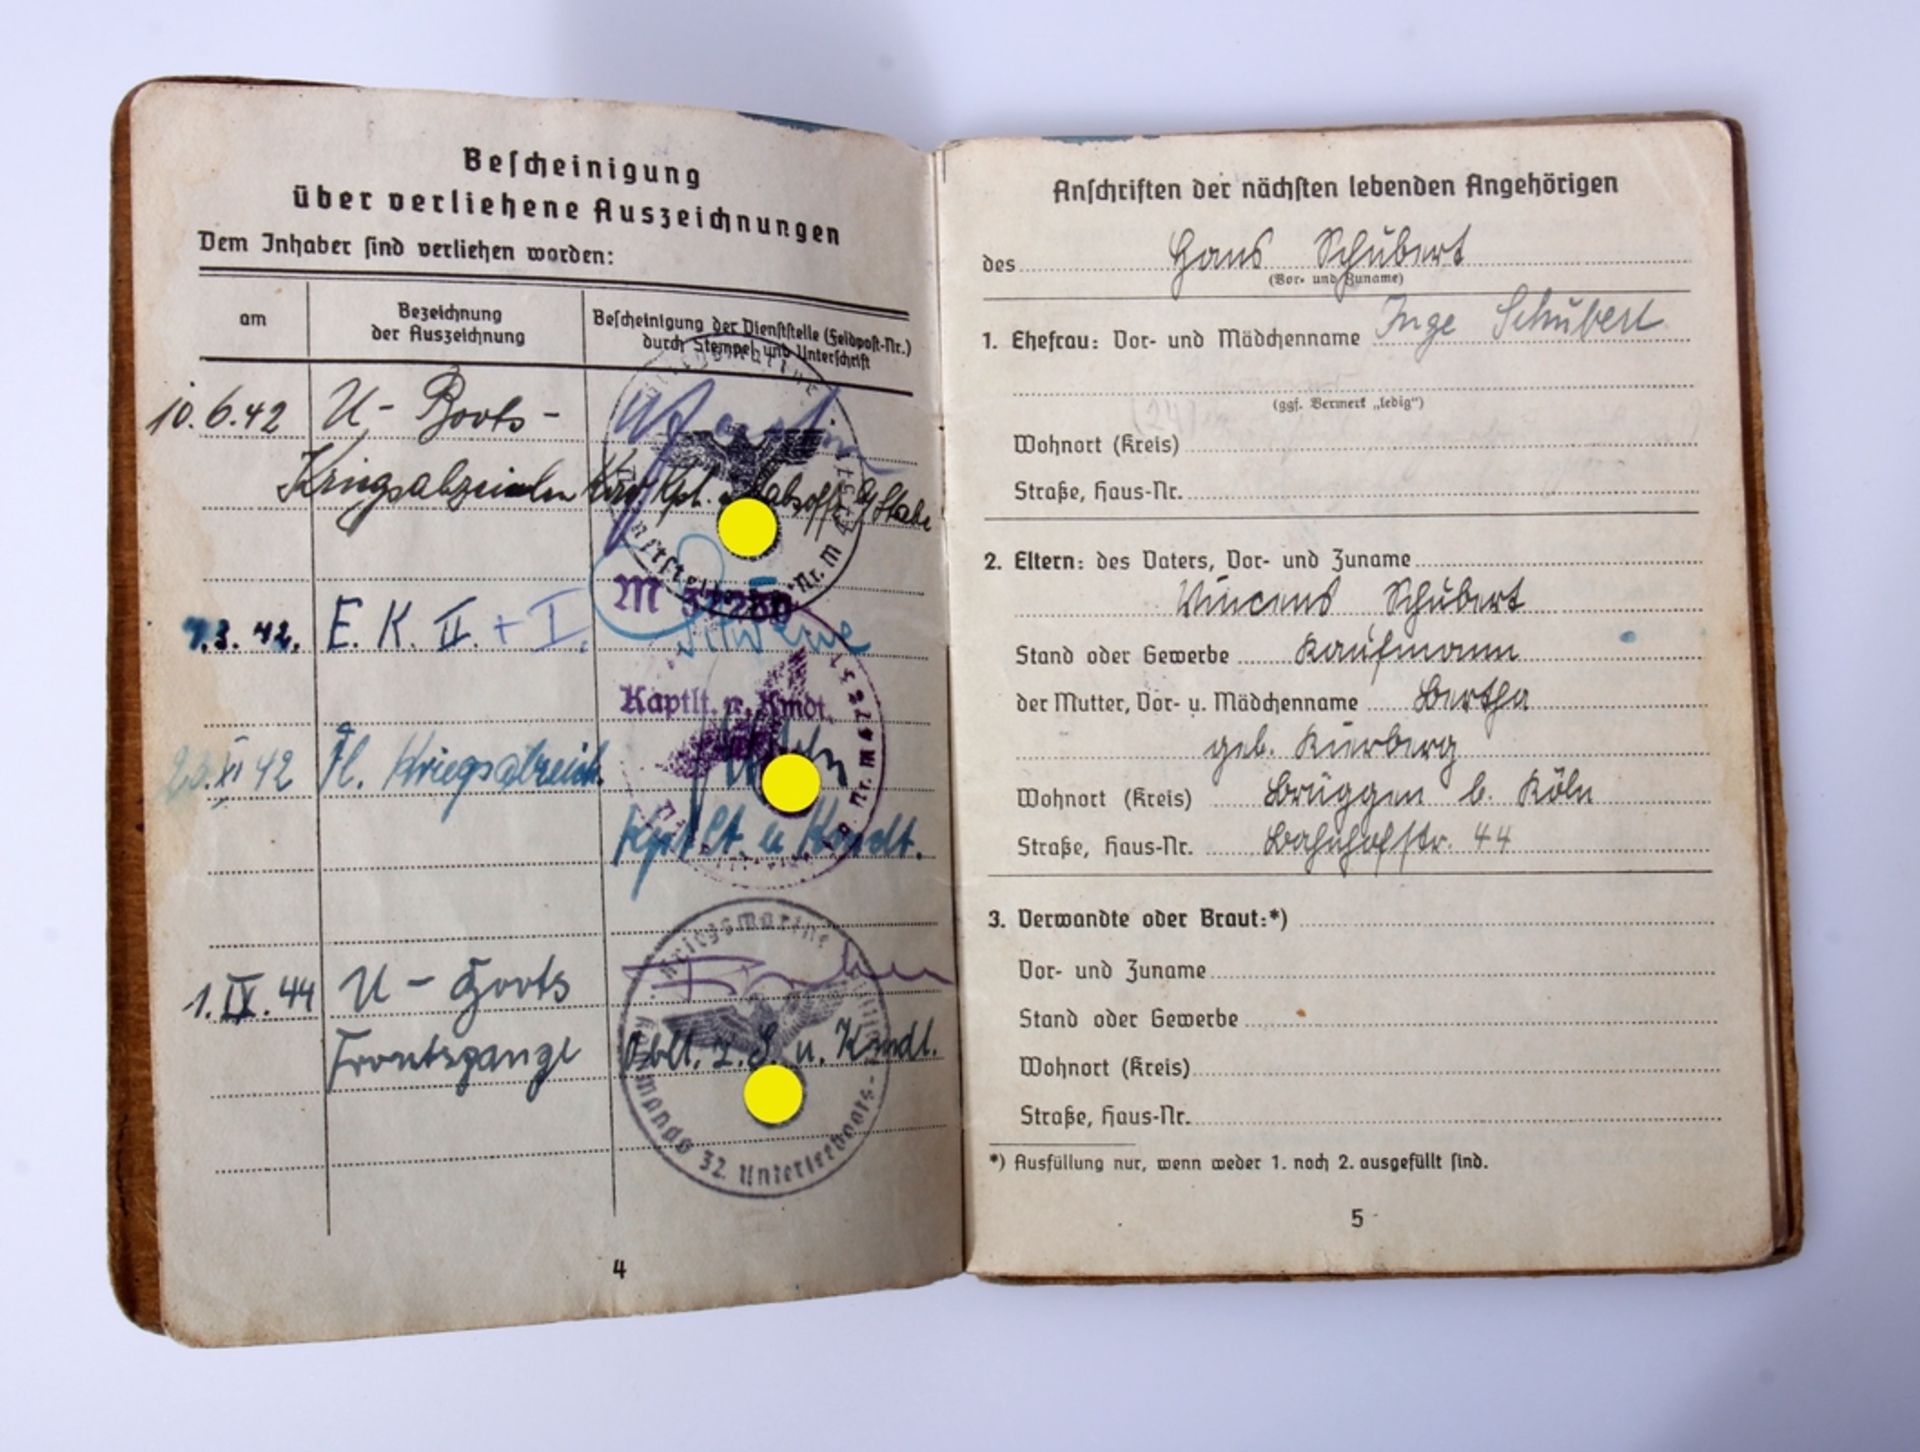 Bescheinigung
über verliehene Auszeichnungen
Dem Inhaber sind verliehen worden:
am
Bezeichnung
der Auszeichnung
Bescheinigung der Dienststelle (Feldpost-Nr.)
durch Stempel und Unterschrift
10.6.42 U-Boots-
Kriegsabzeichen
M
7.3.42. E. K. II. + I.
Kaptlt. u. Kmdt.
42 Fl. Kriegsabzeich.
Kptlt. u Komdt.
Kriegsmarine
1. IX. 44 U-Boots
Frontspange Oblt. z. S. u. Kmdt.
Kommando 32. Unterseeboots-
4
Anschriften der nächsten lebenden Angehörigen
des Hans Schubert
(Vor- und Zuname)
1. Ehefrau: Vor- und Mädchenname Inge Schubert
(ggf. Vermerk „ledig“)
Wohnort (Kreis)
Straße, Haus-Nr.
2. Eltern: des Vaters, Vor- und Zuname
Vincens Schubert
Stand oder Gewerbe Kaufmann
der Mutter, Vor- u. Mädchenname Bertha
geb. Kierberg
Wohnort (Kreis) Brüggen b. Köln
Straße, Haus-Nr. Bahnhofstr. 44
3. Verwandte oder Braut:*)
Vor- und Zuname
Stand oder Gewerbe
Wohnort (Kreis)
Straße, Haus-Nr.
*) Ausfüllung nur, wenn weder 1. noch 2. ausgefüllt sind.
5